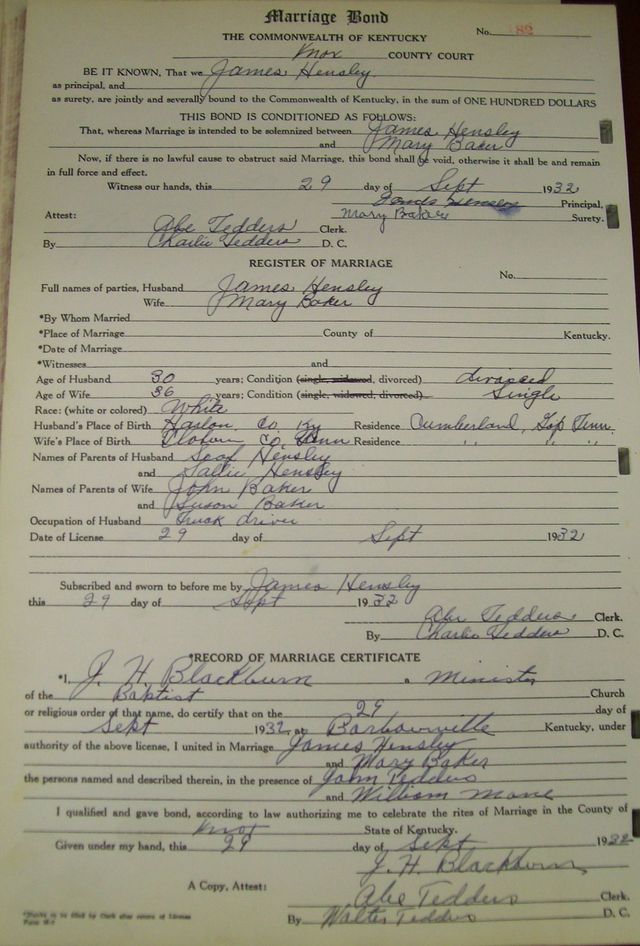 Marriage Bond
THE COMMONWEALTH OF KENTUCKY
No. 82
Knox COUNTY COURT
BE IT KNOWN, That we James Hensley
as principal, and
as surety, are jointly and severally bound to the Commonwealth of Kentucky, in the sum of ONE HUNDRED DOLLARS
THIS BOND IS CONDITIONED AS FOLLOWS:
That, whereas Marriage is intended to be solemnized between James Hensley
and Mary Baker
Now, if there is no lawful cause to obstruct said Marriage, this bond shall be void, otherwise it shall be and remain
in full force and effect.
Witness our hands, this 29 day of Sept 1932
James Hensley Principal,
Attest: Mary Baker Surety.
Abe Tedders Clerk.
By Charlie Tedders D. C.
REGISTER OF MARRIAGE
No.
Full names of parties, Husband James Hensley
Wife Mary Baker
*By Whom Married
*Place of Marriage County of Kentucky.
*Date of Marriage
*Witnesses and
Age of Husband 30 years; Condition (single, widowed, divorced) divorced
Age of Wife 36 years; Condition (single, widowed, divorced) Single
Race: (white or colored) White
Husband's Place of Birth Harlan, Co. Ky Residence Cumberland, Gap Tenn.
Wife's Place of Birth Co. Tenn Residence " " "
Names of Parents of Husband Hensley
and Sallie Hensley
Names of Parents of Wife John Baker
and Susan Baker
Occupation of Husband Truck driver
Date of License 29 day of Sept 1932
Subscribed and sworn to before me by James Hensley
this 29 day of Sept 1932
Abe Tedders Clerk.
By Charlie Tedders D. C.
*RECORD OF MARRIAGE CERTIFICATE
*I, J. H. Blackburn a Minister
of the Baptist Church
or religious order of that name, do certify that on the 29 day of
Sept 1932, at Barbourville Kentucky, under
authority of the above license, I united in Marriage James Hensley
and Mary Baker
the persons named and described therein, in the presence of John Tedders
and William
I qualified and gave bond, according to law authorizing me to celebrate the rites of Marriage in the County of
Knox State of Kentucky.
Given under my hand, this 29 day of Sept 1932
J. H. Blackburn
A Copy, Attest:
Abe Tedders Clerk.
By Walter Tedders D. C.